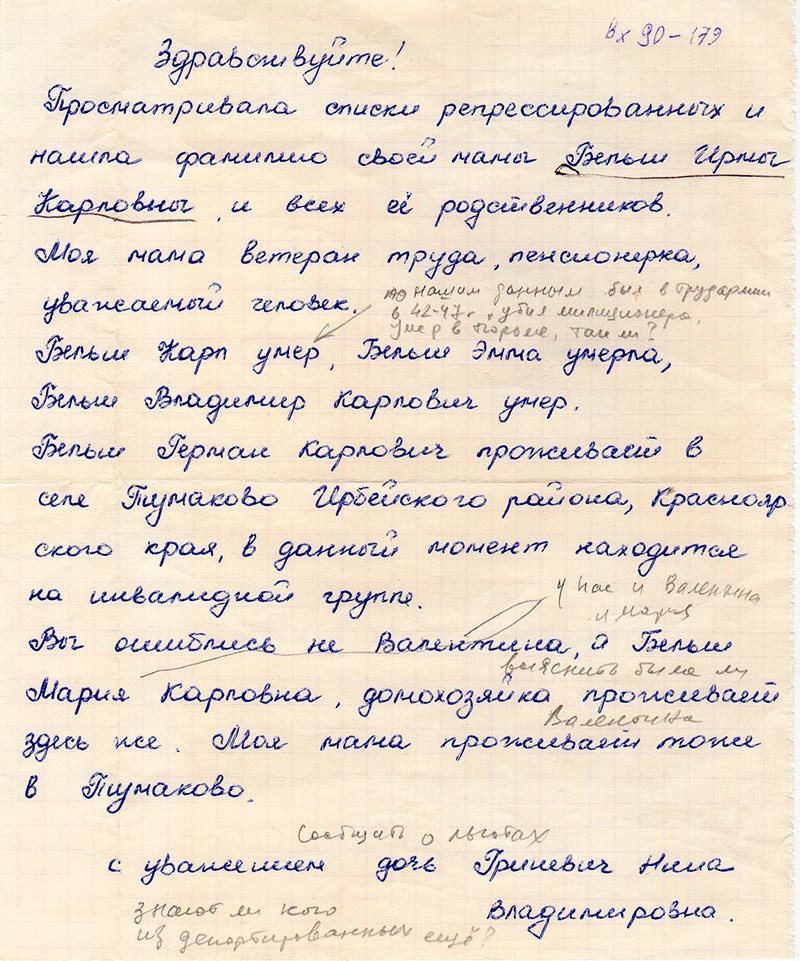 Вх 90-179
Здравствуйте!
Просматривала списки репрессированных и
нашла фамилию своей мамы Бельш Ирмы
Карловны и всех её родственников.
Моя мама ветеран труда, пенсионерка,
уважаемый человек.
по нашим данным был в трудармии
в 42-47г., убил милиционера,
умер в тюрьме, так ли?
Бельш Карл умер, Бельш Эмма умерла,
Бельш Владимир Карлович умер.
Бельш Герман Карлович проживает в
селе Тумаково Ирбейского района, Краснояр
ского края, в данный момент находится
на инвалидной группе.
у нас и Валентина
и Мария
Вы ошиблись не Валентина, а Бельш
выяснить была ли
Мария Карловна, домохозяйка проживает
Валентина
здесь же. Моя мама проживает тоже
в Тумаково.
Сообщить о льготах
с уважением дочь Гриневич Нина
Владимировна.
знают ли кого
из депортированных ещё?